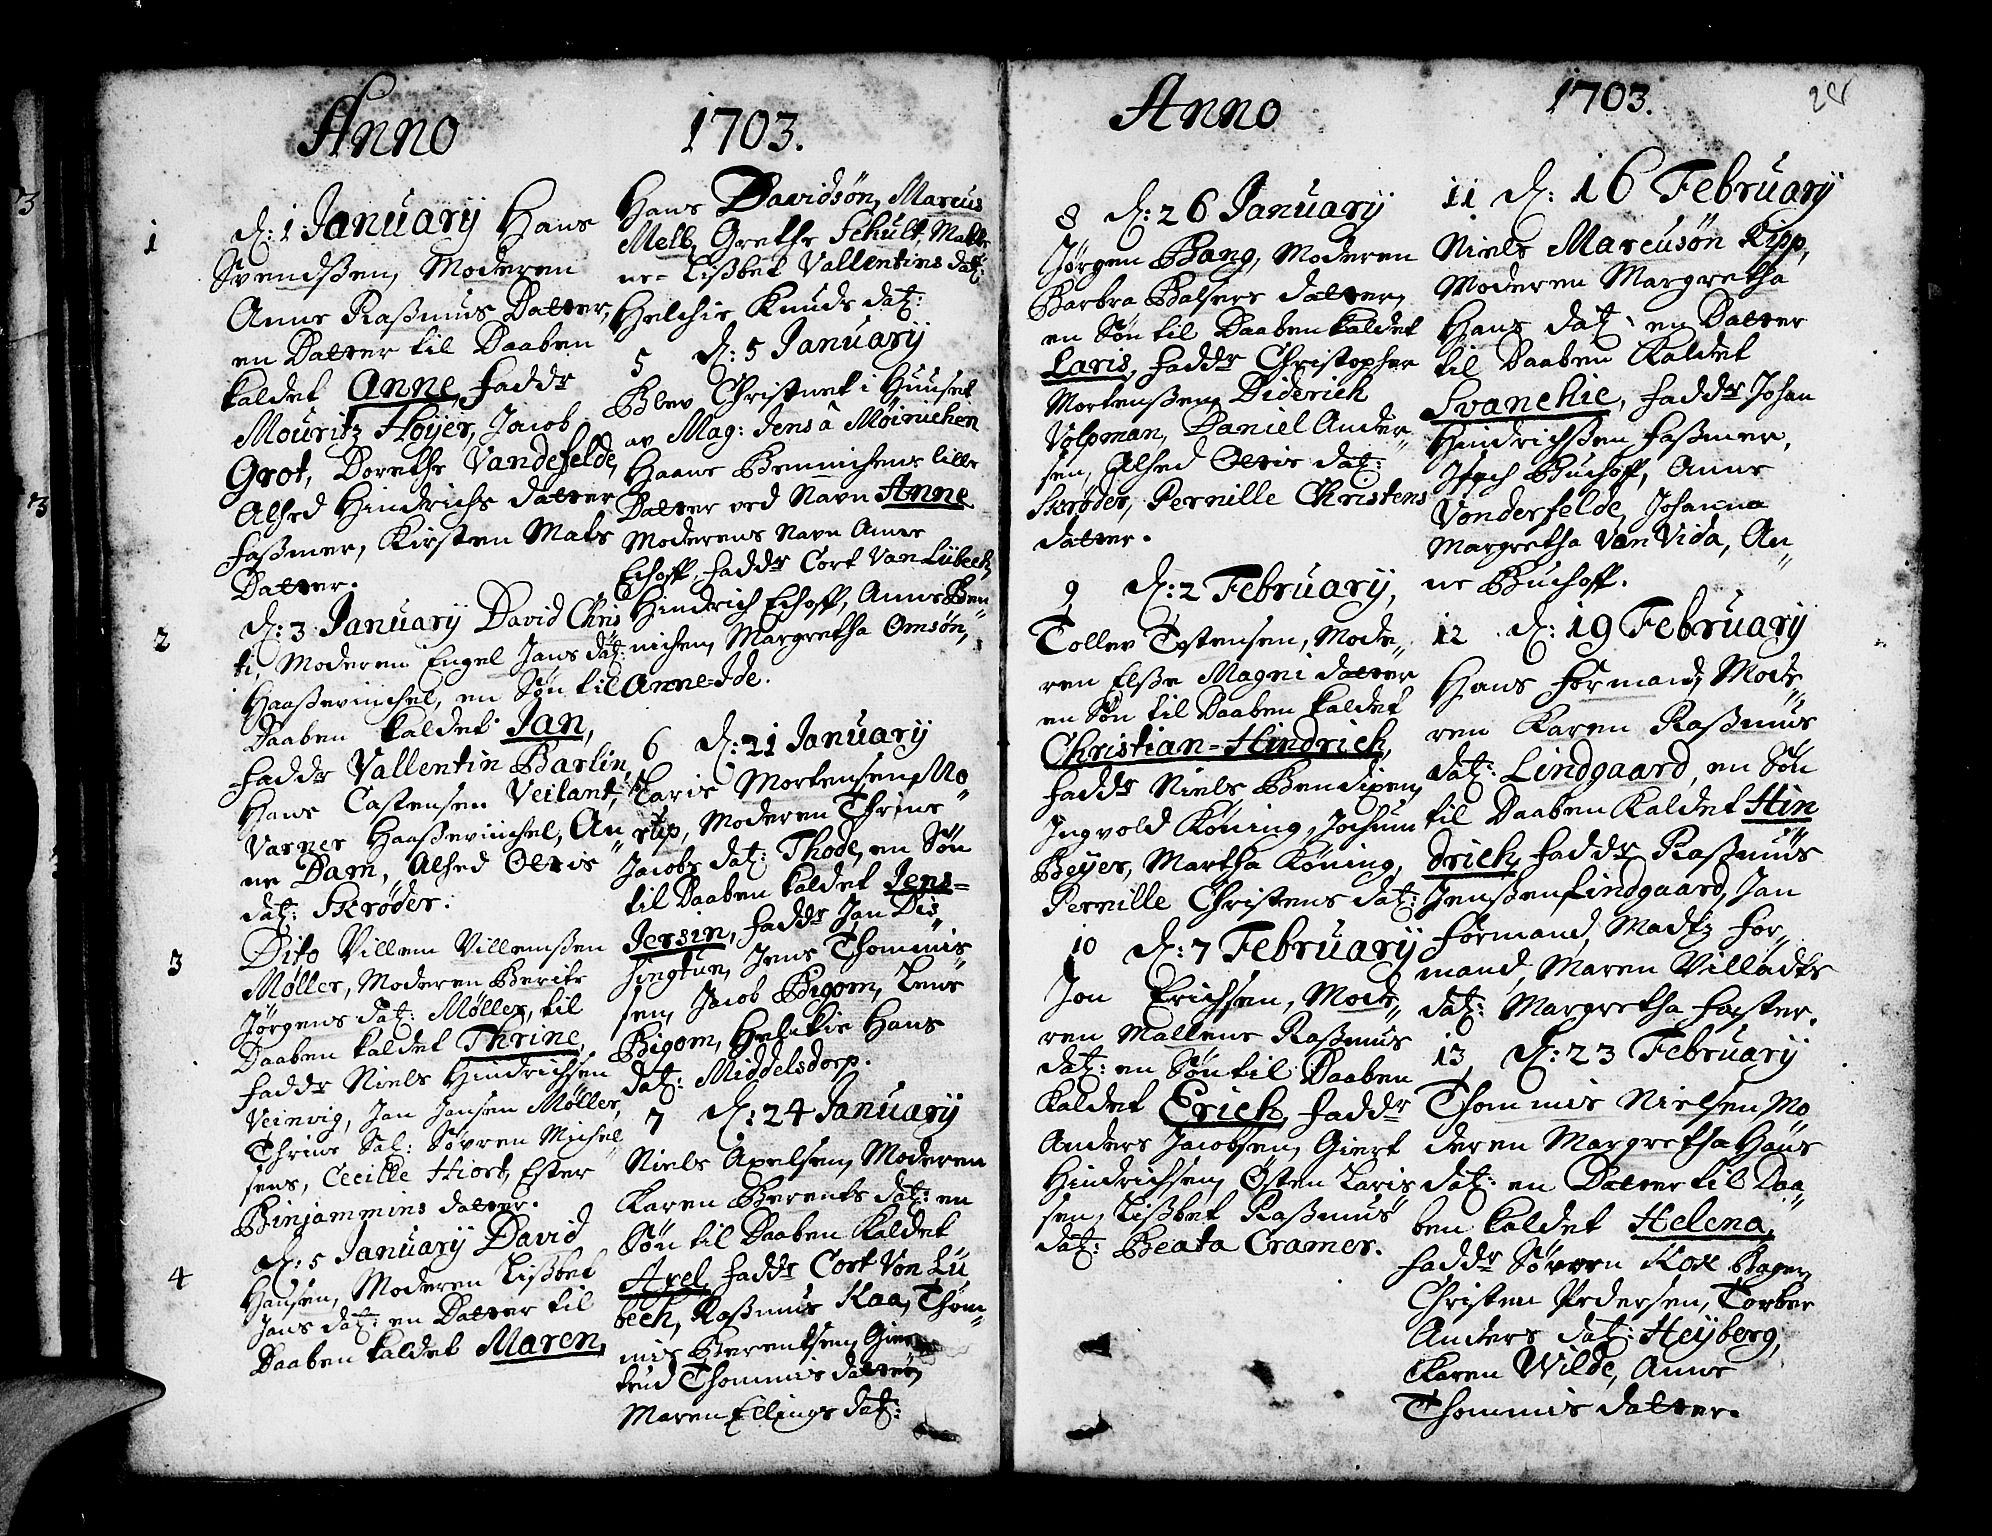 Anno 1703.
1
d: 1 January Hans
Svendssen, Moderen
Anne Rassmus Datter,
en Datter til Daaben
kaldet Anne, fadd:r
Mouritz Høyer, Jacob
Grot, Dorethe Vandefelde,
Alhed Hindrichs datter
fassmer, Kirsten Mats
Datter.
2
d: 3 January David Chris
ti, Moderen Engel Jans dat:
Haassevinchel, en Søn til
Daaben kaldet Jan,
fadd:r Vallentin Barlin,
Hans Castensen Veilant,
Varner Haassevinchel, An„
ne Dam, Alhed Oltis
dat: Skrøder.
3
Dito Villem Villemssen
Møller, Moderen Berite
Jørgens dat: Møller, til
Daaben kaldet Thrine,
fadd:r Niels Hindrichsen
Veinvig, Jan Jansen Møller,
Thrine Sal: Søvren Michel
sens, Cecille Hiort, Ester
Binjammins datter.
4
d: 5 January David
Hansen, Moderen Lissbet
Jans dat: en Datter til
Daaben kaldet Maren,
Hans Davidsøn, Marcus
Melb, Grethe Schult, Mal
ne Lissbet Vallentins dat:
Helchie Knuds dat:
5 d: 5 January
Blev Christnet i Huuset
av Mag: Jens à Møinichen
Haans Bennichens lille
Datter ved Navn Anne
Moderens Navn Anne
Echoff, fadd:r Cort Van Lübech,
Hindrich Echoff, Anne Ben„
nichen, Margretha Omsøn,
Anne-Ide.
6 d: 21 January
Laris Mortensen, Mo„
rtip, Moderen Thrine
Jacobs dat: Thode, en Søn
til Daaben kaldet Jens=
Jersin, fadd:r Jan Dis„
hingtun, Jens Thommis„
sen, Jacob Bigom, Lene
Bigom, Helckie Hans
dat: Middelsdorp.
7 d: 24 January
Niels Axelsen, Moderen
Karen Berents dat: en
Søn til Daaben kaldet
Axel, fadd:r Cort Von Lu
bech, Rassmus Kaa, Thom„
mis Berentsen, Gier
trud Thommis datter,
Maren Ellings dat:
Anno 1703.
8 d: 26 January
Jørgen Bang, Moderen
Barbra Balsers datter,
en Søn til Daaben kaldet
Laris, fadd:r Christopher
Mortenssen, Diderich
Volpman, Daniel Ander„
sen, Alhed Oltis dat:
Skrøder, Pernille Christens
datter.
9 d: 2 February,
Tollev Tostensen, Mode„
ren Elsse Magni datter
en Søn til Daaben kaldet
Christian=Hindrich,
fadd:r Niels Bendixen,
Ingvold Køning, Jochum
Beyer, Martha Køning,
Pernille Christens dat:
10 d: 7 February
Jon Erichsen, Mode„
ren Mallene Rassmus
dat: en Søn til Daaben
Kaldet Erich, fadd:r
Anders Jacobsen, Giert
Hindrichsen, Østen Laris„
sen, Lissbet Rassmus
dat: Beata Cramer.
11 d: 16 February
Niels Marcusøn Kipp,
Moderen Margretha
Hans dat: en Datter
til Daaben Kaldet
Svanckie, fadd:r Johan
Hindrichssen fassmer,
Buchoff, Anne
Vonderfelde, Johanna
Margretha Van Vida, An„
ne Buchoff.
12 d: 19 February
Hans formand, Mode„
ren Karen Rassmus
dat: Lindgaard, en Søn
til Daaben Kaldet Hin
drich, fadd:r Rassmus
Jenssen Lindgaard, Jan
formand, Madtz for„
mand, Maren Villadts
dat: Margretha faster.
13 d: 23 February
Thommis Nielsen, Mo
deren Margretha Hans
dat: en Datter til Daa„
ben kaldet Helena,
fadd:r Søvren Kox Bager,
Christen Pedersen, Torber
Anders dat: Heyberg,
Karen Wilde, Anne
Thommis datter.